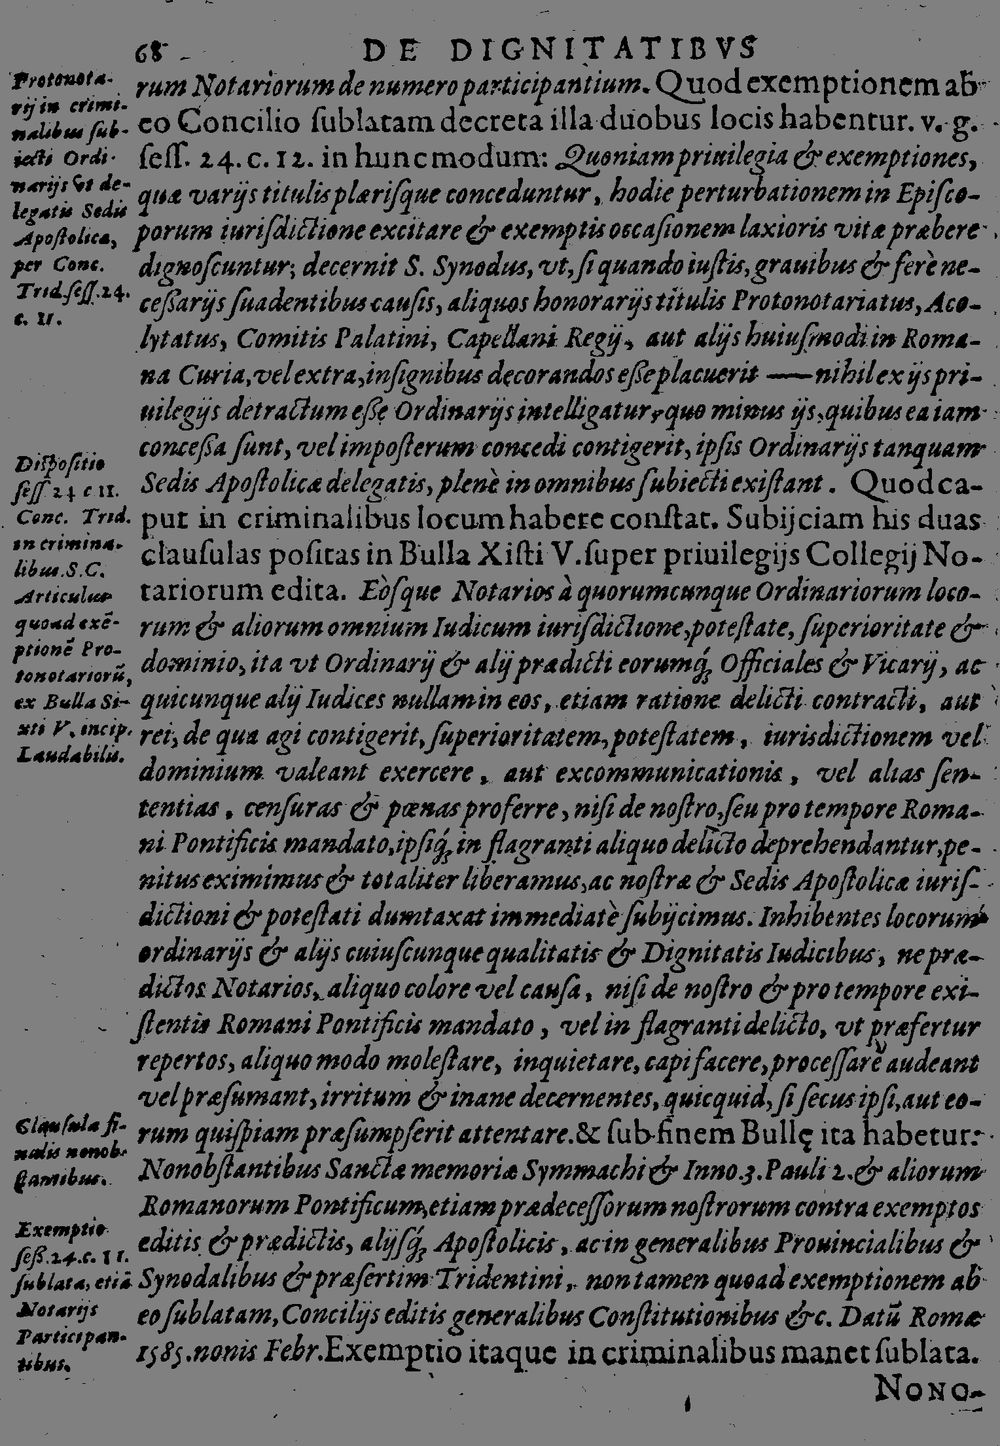 68 DE DIGNITATIBVS
rum Notariorum de numero participantium. Quod exemptionem ab
eo Concilio ſublatam decreta illa duobus locis habentur. v. g.
ſeſſ. 24. c. 12. in hunc modum: Quoniam priuilegia & exemptiones,
quæ varijs titulis plæriſque conceduntur, hodie perturbationem in Epiſco-
porum iuriſdictione excitare & exemptis occaſionem laxioris vitæ præbere
dignoſcuntur; decernit S. Synodus, vt, ſi quando iuſtis, grauibus & ferè ne-
ceßarijs ſuadentibus cauſis, aliquos honorarijs titulis Protonotariatus, Aco-
lytatus, Comitis Palatini, Capellani Regij, aut alijs huiuſmodi in Roma-
na Curia, vel extra, inſignibus decorandos eße placuerit — nihil ex ijs pri-
uilegijs detractum eße Ordinarijs intelligatur, quo minus ijs, quibus ea iam
conceßa ſunt, vel impoſterum concedi contigerit, ipſis Ordinarijs tanquam
Sedis Apoſtolicæ delegatis, plenè in omnibus ſubiecti exiſtant. Quod ca-
put in criminalibus locum habere conſtat. Subijciam his duas
clauſulas poſitas in Bulla Xiſti V. ſuper priuilegijs Collegij No-
tariorum edita. Eòſque Notarios à quorumcunque Ordinariorum loco-
rum & aliorum omnium Iudicum iuriſdictione, poteſtate, ſuperioritate &
dominio, ita vt Ordinarij & alij prædicti eorumq́; Officiales & Vicarij, ac
quicunque alij Iudices nullam in eos, etiam ratione delicti contracti, aut
rei, de qua agi contigerit, ſuperioritatem, poteſtatem, iurisdictionem vel
dominium valeant exercere, aut excommunicationis, vel alias ſen-
tentias, cenſuras & pœnas proferre, niſi de noſtro, ſeu pro tempore Roma-
ni Pontificis mandato, ipſiq́; in flagranti aliquo delicto deprehendantur, pe-
nitus eximimus & totaliter liberamus, ac noſtræ & Sedis Apoſtolicæ iuriſ-
dictioni & poteſtati dumtaxat immediatè ſubijcimus. Inhibentes locorum
ordinarijs & alijs cuiuſcunque qualitatis & Dignitatis Iudicibus, ne præ-
dictos Notarios, aliquo colore vel cauſa, niſi de noſtro & pro tempore exi-
ſtentis Romani Pontificis mandato, vel in flagranti delicto, vt præfertur
repertos, aliquo modo moleſtare, inquietare, capi facere, proceſſarè audeant
vel præſumant, irritum & inane decernentes, quicquid, ſi ſecus ipſi, aut eo-
rum quiſpiam præſumpſerit attentare. & ſub finem Bullę ita habetur:
Nonobſtantibus Sanctæ memoriæ Symmachi & Inno. 3. Pauli 2. & aliorum
Romanorum Pontificum, etiam prædeceſſorum noſtrorum contra exemptos
editis & prædictis, alijſq́; Apoſtolicis, ac in generalibus Prouincialibus &
Synodalibus & præſertim Tridentini, non tamen quoad exemptionem ab
eo ſublatam, Concilijs editis generalibus Conſtitutionibus &c. Datũ Romæ
1585. nonis Febr. Exemptio itaque in criminalibus manet ſublata.
NONO-
Protonota-
rij in crimi-
nalibus ſub-
iecti Ordi-
narijs vt de-
legatis Sedis
Apoſtolica,
per Conc.
Trid. ſeſſ. 24.
c. 11.
Diſpoſitio
ſeſſ 24 c 11.
Conc. Trid.
in crimina-
libus. S. C.
Articulus
quoad exẽ-
ptionẽ Pro-
tonotariorũ,
ex Bulla Si-
xti V. incip.
Laudabilis.
Clauſula fi-
nalis nonob-
ſtantibus.
Exemptio
ſeß. 24. c. 11.
ſublata, etiã
Notarijs
Participan-
tibus.